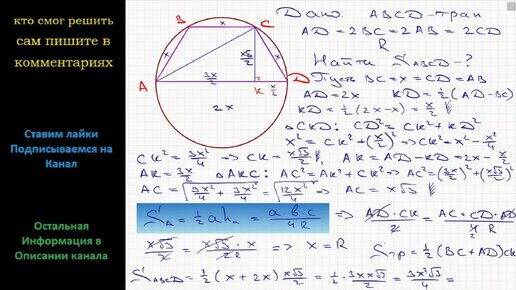 кто смог решить
сам пишите в
комментариях
Ставим лайки
Подписываемся на
Канал
Остальная
Информация в
Описании канала
B x C
x x√3/2 x
A 3x/2 K x/2 D
2x
Дано: ABCD-трап
AD=2BC=2AB=2CD
R
Найти S_ABCD-?
Пусть BC=x=CD=AB
AD=2x KD=1/2(AD-BC)
KD=1/2(2x-x)=x/2
△CKD: CD²=CK²+KD²
x²=CK²+(x/2)² => CK²=x²-x²/4
CK²=3x²/4 => CK=x√3/2, AK=AD-KD=2x-x/2
AK=3x/2 △AKC: AC²=AK²+CK² => AC²=(3x/2)²+(x√3/2)²
AC=√(9x²/4+3x²/4)=√(12x²/4) => AC=x√3
S_△=1/2ah_a=a·b·c/4R => AD·CK/2=AC·CD·AD/4R
x√3/2=x√3·x/2R => x=R S_тр=1/2(BC+AD)CK
S_ABCD=1/2(x+2x)x√3/2=1/2·3x·x√3/2=3x²√3/4=